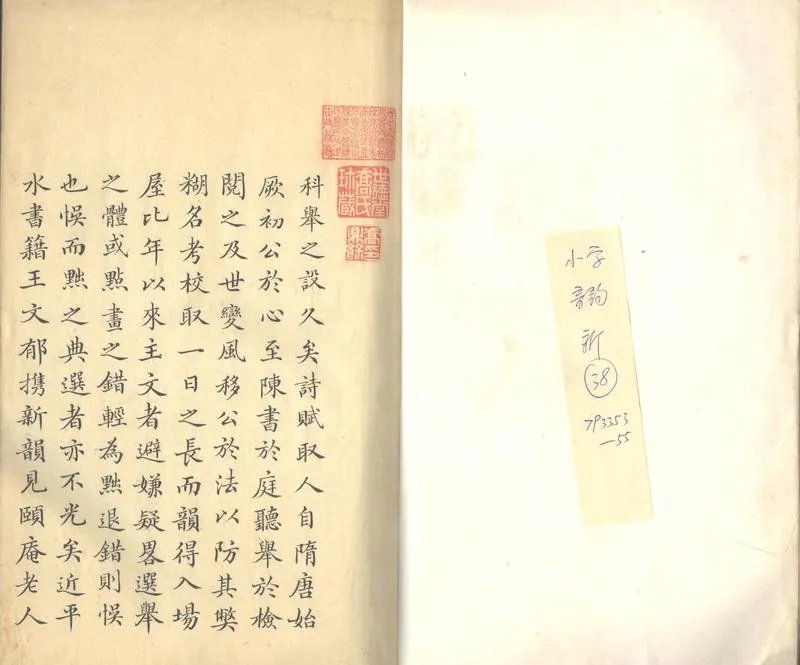 小字
音韵
新
38
793353
—55
喬氏
珍藏
科舉之設久矣詩賦取人自隋唐始
厥初公於心至陳書於庭聽舉於檢
閱之及世變風移公於法以防其獘
糊名考校取一日之長而韻得入場
屋比年以來主文者避嫌疑畧選舉
之體或點畫之錯輕為黜退錯則悞
也悞而黜之典選者亦不光矣近平
水書籍王文郁携新韻見頤庵老人